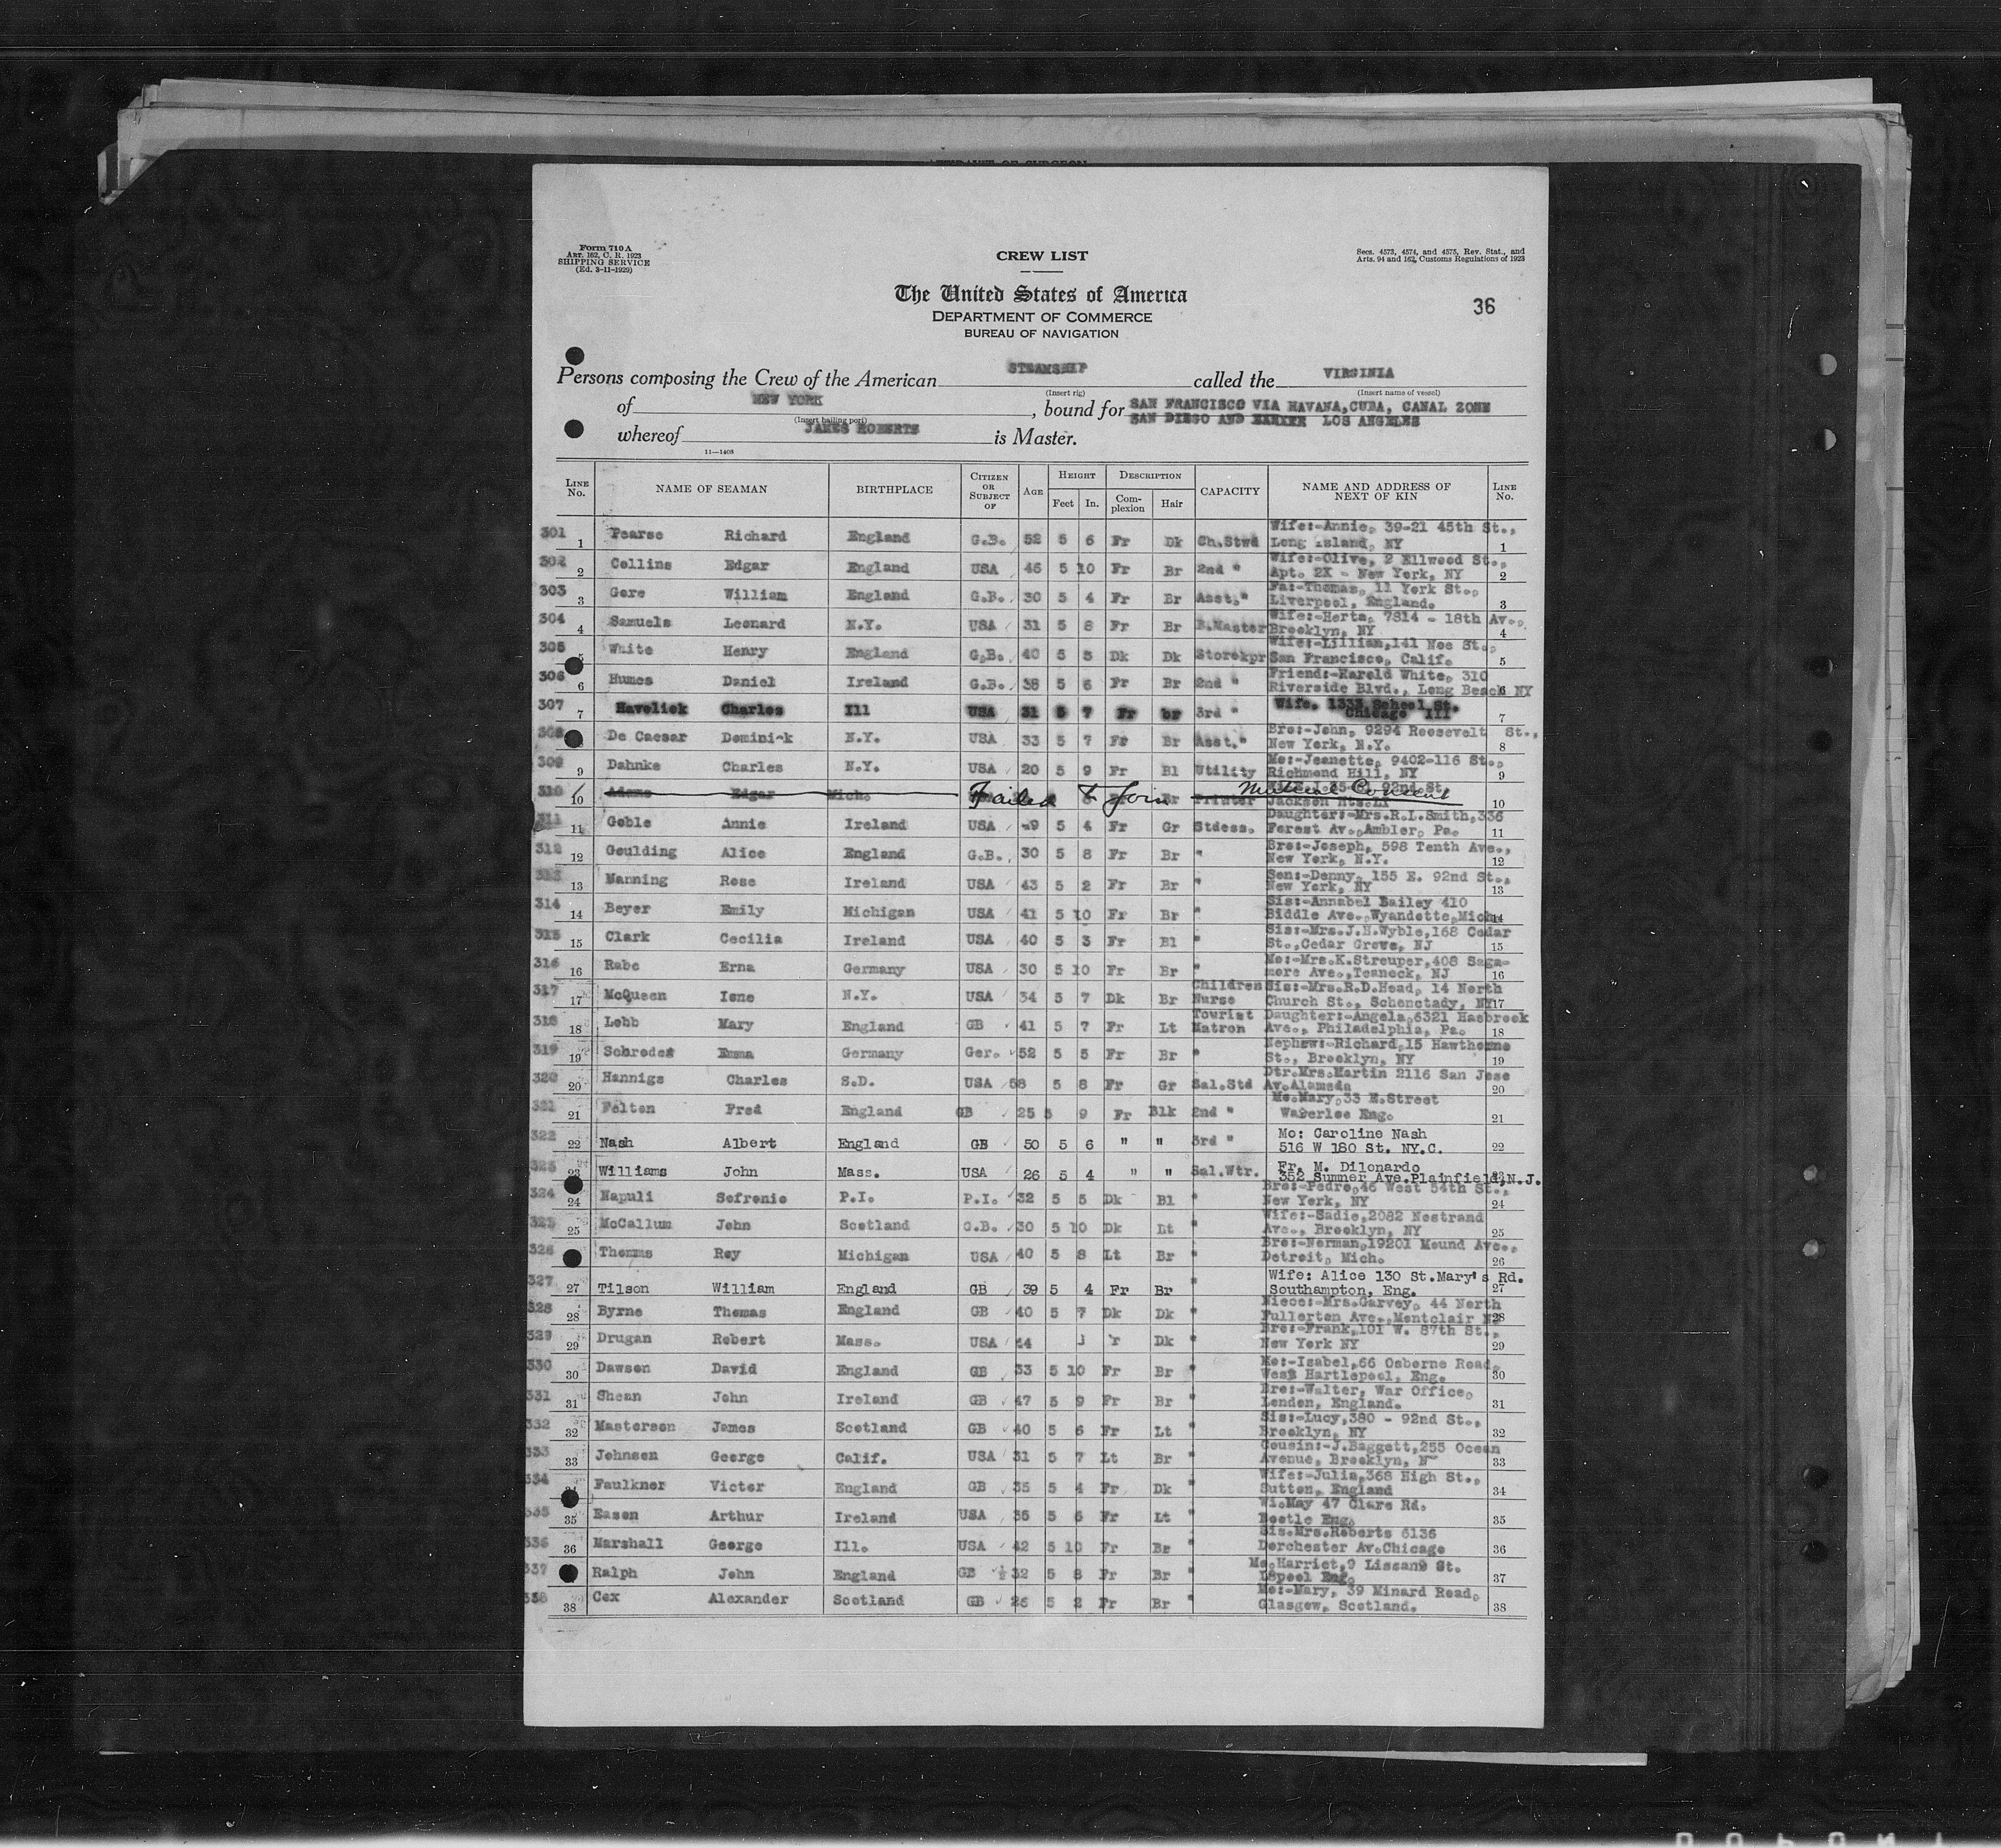 AFFIDAVIT OF SURGEON
Form 710 A
Art. 162, C. R. 1923
SHIPPING SERVICE
(Ed. 3-11-1929)
CREW LIST
Secs. 4573, 4574, and 4575, Rev. Stat., and
Arts. 94 and 162, Customs Regulations of 1923
The United States of America
DEPARTMENT OF COMMERCE
BUREAU OF NAVIGATION
36
Persons composing the Crew of the American STEAMSHIP called the VIRGINIA
(Insert rig) (Insert name of vessel)
of NEW YORK, bound for SAN FRANCISCO VIA HAVANA,CUBA, CANAL ZONE
(Insert hailing port) SAN DIEGO AND LOS ANGELES
whereof JAMES ROBERTS is Master.
11—1408
LINE No. NAME OF SEAMAN BIRTHPLACE CITIZEN OR SUBJECT OF AGE HEIGHT Feet In. DESCRIPTION Complexion Hair CAPACITY NAME AND ADDRESS OF NEXT OF KIN LINE No.
301 1 Pearse Richard England G.B. 52 5 6 Fr Dk Ch.Stwd Wife:-Annie, 39-21 45th St., Long Island, NY 1
302 2 Collins Edgar England USA 46 5 10 Fr Br 2nd " Wife:-Olive, 2 Ellwood St., Apt. 2X - New York, NY 2
303 3 Gore William England G.B. 30 5 4 Fr Br Asst." Fa:-Thomas, 11 York St., Liverpool, England. 3
304 4 Samuels Leonard N.Y. USA 31 5 8 Fr Br B.Master Wife:-Herta, 7814 - 18th Av., Brooklyn, NY 4
305 5 White Henry England G.B. 40 5 5 Dk Dk Storekpr Wife:-Lillian,141 Noe St., San Francisco, Calif. 5
306 6 Humes Daniel Ireland G.B. 38 5 6 Fr Br 2nd " Friend:-Harold White, 310 Riverside Blvd., Long Beach NY 6
307 7 Havelick Charles Ill USA 31 5 7 Fr br 3rd " Wife. 1333 School St. Chicago Ill 7
308 De Caesar Dominick N.Y. USA 33 5 7 Fr Br Asst." Bro:-John, 9294 Roosevelt St., New York, N.Y. 8
309 9 Dahnke Charles N.Y. USA 20 5 9 Fr Bl Utility Mo:-Jeanette, 9402-116 St., Richmond Hill, NY 9
310 10 Adams Edgar Mich. Failed to Join Br Printer Mutual Consent 92nd St. Jackson Hts.LI 10
311 11 Goble Annie Ireland USA 49 5 4 Fr Gr Stdess. Daughter:-Mrs.R.L.Smith,336 Forest Av.,Ambler, Pa. 11
312 12 Goulding Alice England G.B. 30 5 8 Fr Br " Bro:-Joseph, 598 Tenth Ave., New York, N.Y. 12
313 13 Manning Rose Ireland USA 43 5 2 Fr Br " Son:-Denny, 155 E. 92nd St., New York, NY 13
314 14 Beyer Emily Michigan USA 41 5 10 Fr Br " Sis:-Annabel Bailey 410 Biddle Ave.,Wyandotte,Mich. 14
315 15 Clark Cecilia Ireland USA 40 5 3 Fr Bl " Sis:-Mrs.J.H.Wyble,168 Cedar St.,Cedar Grove, NJ 15
316 16 Rabe Erna Germany USA 30 5 10 Fr Br " Mo:-Mrs.K.Streuper,408 Sagamore Ave.,Teaneck, NJ 16
317 17 McQueen Ione N.Y. USA 34 5 7 Dk Br Children Nurse Sis:-Mrs.R.D.Head, 14 North Church St., Schenctady, NY 17
318 18 Lobb Mary England GB 41 5 7 Fr Lt Tourist Matron Daughter:-Angela,6321 Hasbrook Ave., Philadelphia, Pa. 18
319 19 Schroder Emma Germany Ger. 52 5 5 Fr Br " Nephew:-Richard,15 Hawthorne St., Brooklyn, NY 19
320 20 Hannigs Charles S.D. USA 58 5 8 Fr Gr Sal.Std Dtr.Mrs.Martin 2116 San Jose Av.Alameda 20
321 21 Felton Fred England GB 25 5 9 Fr Blk 2nd " Mo.Mary,33 E.Street Waterloo Eng. 21
322 22 Nash Albert England GB 50 5 6 " " 3rd " Mo: Caroline Nash 516 W 180 St. NY.C. 22
323 23 Williams John Mass. USA 26 5 4 " " Sal.Wtr. Fr. M. Dilonardo 352 Sumner Ave.Plainfield,N.J. 23
324 24 Napuli Sofronio P.I. P.I. 32 5 5 Dk Bl " Bro:-Pedro,46 West 54th St., New York, NY 24
325 25 McCallum John Scotland G.B. 30 5 10 Dk Lt " Wife:-Sadie,2082 Nostrand Ave., Brooklyn, NY 25
326 Thomas Roy Michigan USA 40 5 8 Lt Br " Bro:-Norman,19201 Mound Ave., Detroit, Mich. 26
327 27 Tilson William England GB 39 5 4 Fr Br " Wife: Alice 130 St.Mary's Rd. Southampton, Eng. 27
328 28 Byrne Thomas England GB 40 5 7 Dk Dk " Niece:-Mrs.Garvey, 44 North Fullerton Ave.,Montclair NJ 28
329 29 Drugan Robert Mass. USA 44 Dk " Bro:-Frank,101 W. 87th St., New York NY 29
330 30 Dawson David England GB 33 5 10 Fr Br " Mo:-Isabel,66 Osborne Road, West Hartlepool, Eng. 30
331 31 Shean John Ireland GB 47 5 9 Fr Br " Bro:-Walter, War Office, London, England. 31
332 32 Masterson James Scotland GB 40 5 6 Fr Lt " Sis:-Lucy,380 - 92nd St., Brooklyn, NY 32
333 33 Johnson George Calif. USA 31 5 7 Lt Br " Cousin:-J.Baggett,255 Ocean Avenue, Brooklyn, N 33
334 Faulkner Victor England GB 35 5 4 Fr Dk " Wife:-Julia,368 High St., Sutton, England 34
335 35 Eason Arthur Ireland USA 36 5 6 Fr Lt " Wi.May 47 Clare Rd. Bootle Eng. 35
336 36 Marshall George Ill. USA 42 5 10 Fr Br " Sis.Mrs.Roberts 6136 Dorchester Av.Chicago 36
337 Ralph John England GB 32 5 8 Fr Br " Mo.Harriet,9 Lissant St. Lpool Eng. 37
338 38 Cox Alexander Scotland GB 26 5 2 Fr Br " Mo:-Mary, 39 Minard Road, Glasgow, Scotland. 38